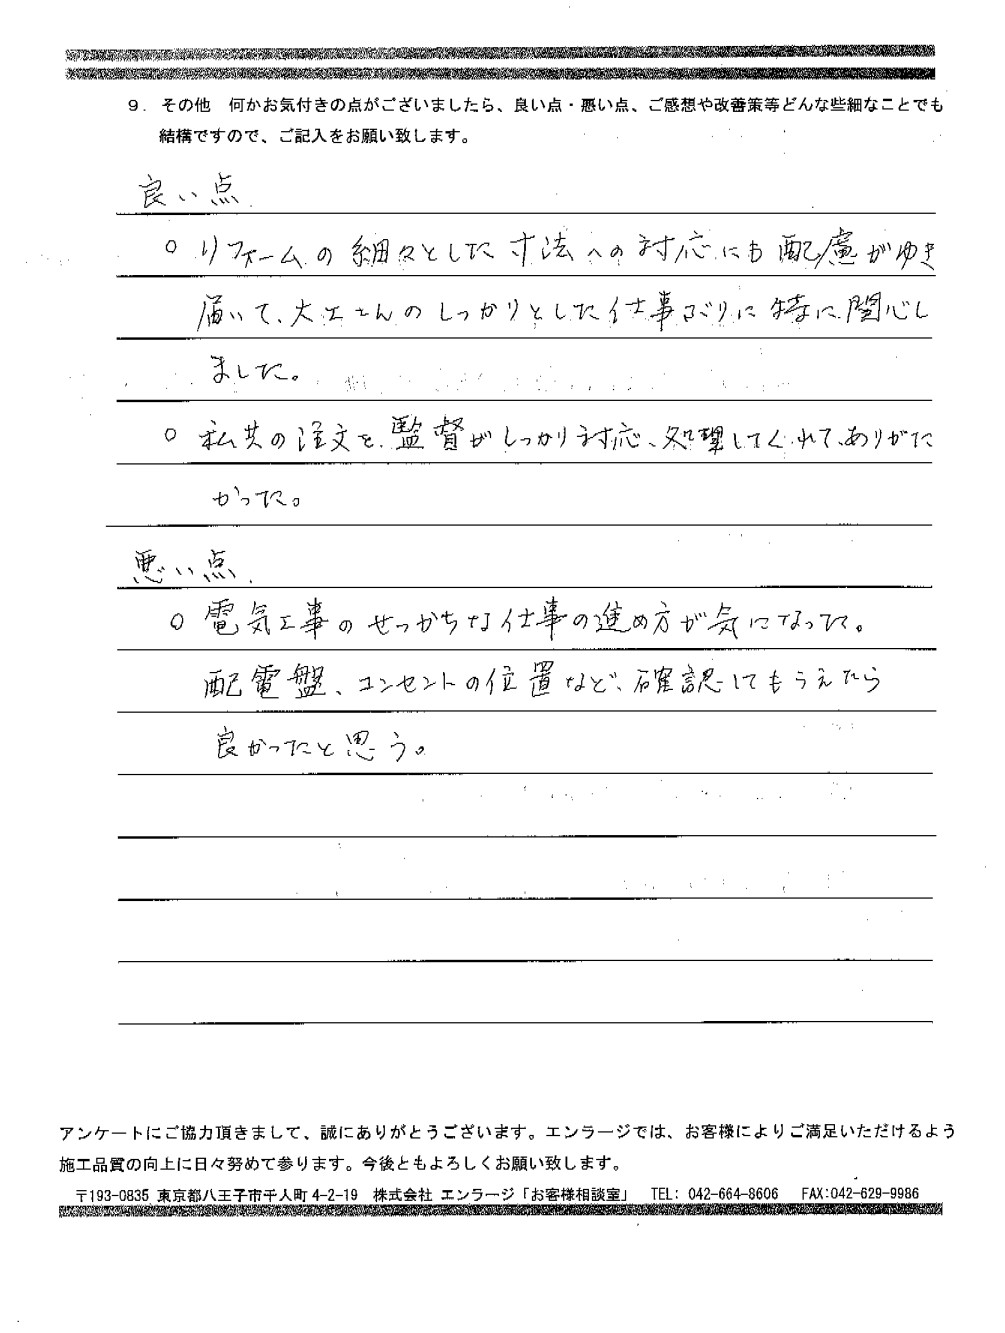 9. その他　何かお気付きの点がございましたら、良い点・悪い点、ご感想や改善策等どんな些細なことでも
結構ですので、ご記入をお願い致します。
良い点
○ リフォームの細々とした寸法への対応にも配慮がゆき
届いて、大工さんのしっかりとした仕事ぶりに特に関心し
ました。
○ 私共の注文を、監督がしっかり対応、処理してくれて、ありがた
かった。
悪い点
○ 電気工事のせっかちな仕事の進め方が気になった。
配電盤、コンセントの位置など、確認してもらえたら
良かったと思う。
アンケートにご協力頂きまして、誠にありがとうございます。エンラージでは、お客様によりご満足いただけるよう
施工品質の向上に日々努めて参ります。今後ともよろしくお願い致します。
〒193-0835 東京都八王子市千人町4-2-19　株式会社 エンラージ「お客様相談室」　TEL: 042-664-8606　FAX:042-629-9986